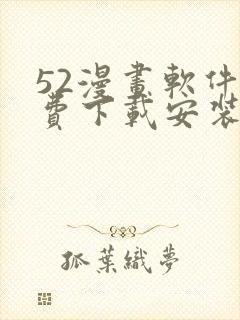 52漫畫軟件
費下載安裝
狐葉織夢